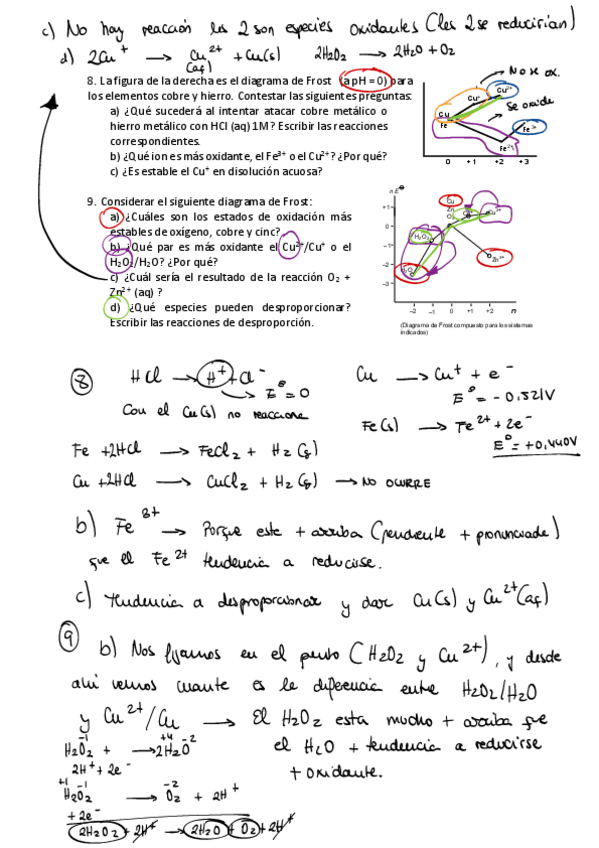 c) No hay reacción los 2 son especies oxidantes (los 2 se reducirían)
d) 2Cu⁺ → Cu²⁺(aq) + Cu(s)   2H₂O₂ → 2H₂O + O₂
8. La figura de la derecha es el diagrama de Frost (a pH = 0) para
los elementos cobre y hierro. Contestar las siguientes preguntas:
a) ¿Qué sucederá al intentar atacar cobre metálico o
hierro metálico con HCl (aq) 1M? Escribir las reacciones
correspondientes.
b) ¿Qué ion es más oxidante, el Fe³⁺ o el Cu²⁺? ¿Por qué?
c) ¿Es estable el Cu⁺ en disolución acuosa?
No se ox.
Cu⁺ Cu²⁺
Se oxide
Cu
Fe
Fe³⁺
Fe²⁺
0 +1 +2 +3
9. Considerar el siguiente diagrama de Frost:
a) ¿Cuáles son los estados de oxidación más
estables de oxígeno, cobre y cinc?
b) ¿Qué par es más oxidante el Cu²⁺/Cu⁺ o el
H₂O₂/H₂O? ¿Por qué?
c) ¿Cuál sería el resultado de la reacción O₂ +
Zn²⁺ (aq) ?
d) ¿Qué especies pueden desproporcionar?
Escribir las reacciones de desproporción.
nE°
+1
0
−1
−2
−3
Cu
Zn
O₂
Cu⁺
Cu²⁺
H₂O₂
H₂O
Zn²⁺
−2 −1 0 +1 +2 n
(Diagrama de Frost compuesto para los sistemas
indicados)
8 HCl → H⁺ + Cl⁻
→ E° = 0
Con el Cu(s) no reacciona
Cu → Cu⁺ + e⁻
E° = -0.521V
Fe(s) → Fe²⁺ + 2e⁻
E° = +0,440V
Fe + 2HCl → FeCl₂ + H₂ (g)
Cu + 2HCl → CuCl₂ + H₂ (g) → NO OCURRE
b) Fe³⁺ → Porque este + arriba (pendiente + pronunciada)
que el Fe²⁺ tendencia a reducirse.
c) Tendencia a desproporcionar y dar Cu(s) y Cu²⁺(aq)
9 b) Nos fijamos en el punto (H₂O₂ y Cu²⁺), y desde
ahi vemos cuante es la diferencia entre H₂O₂/H₂O
y Cu²⁺/Cu → El H₂O₂ esta mucho + arriba que
el H₂O + tendencia a reducirse
+ oxidante.
-1 +4 -2
H₂O₂ + → 2H₂O
2H⁺ + 2e⁻
+1 -1 -2
H₂O₂ → O₂ + 2H⁺
+ 2e⁻
2H₂O₂ + 2H⁺ → 2H₂O + O₂ + 2H⁺